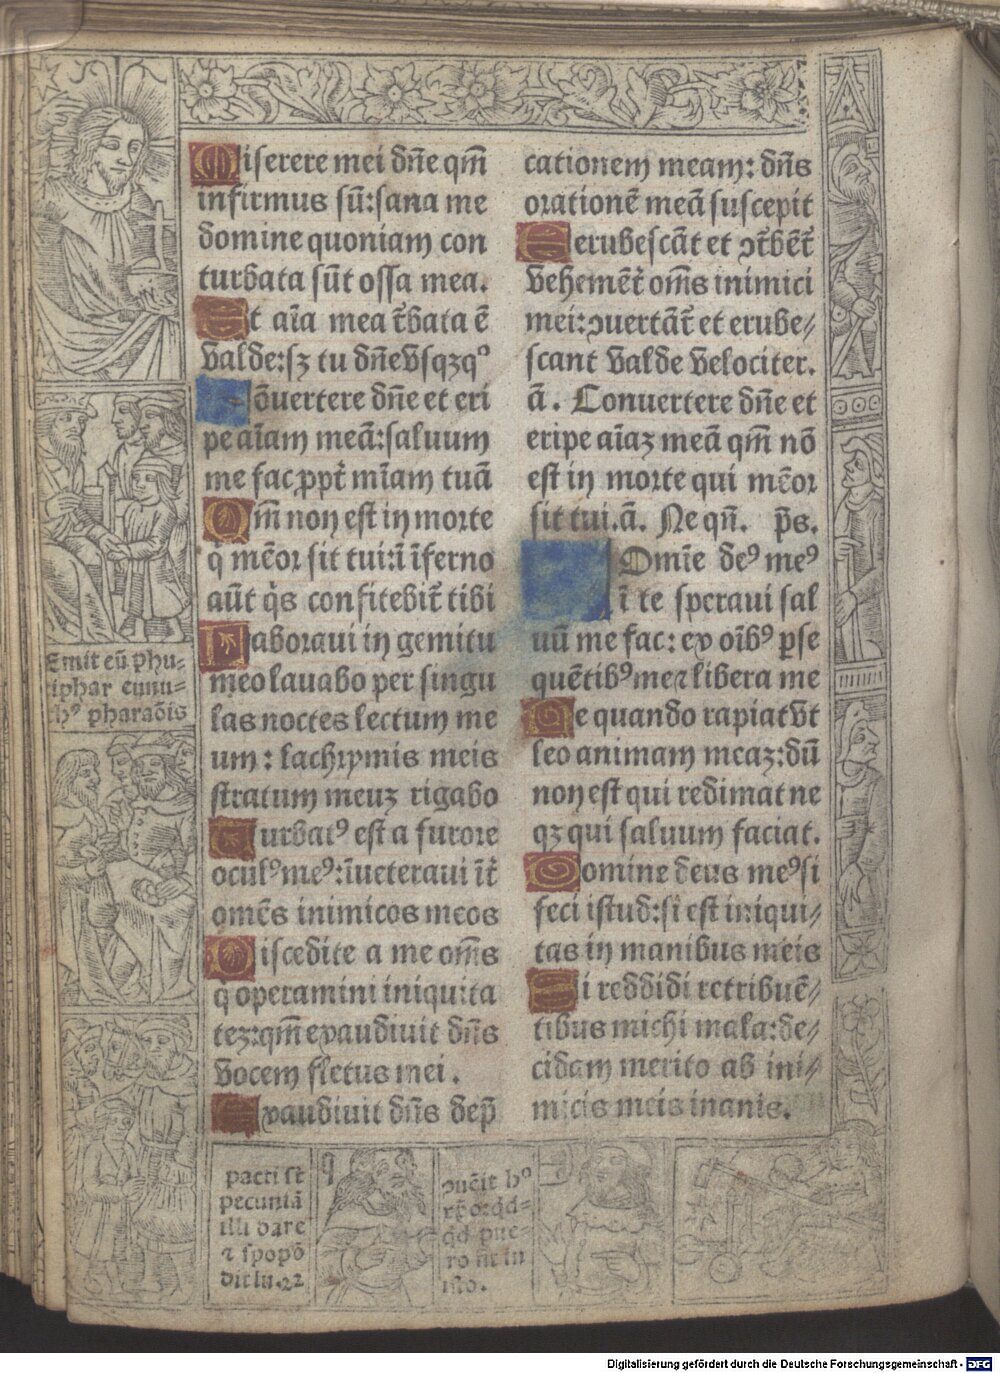 Miserere mei dñe qm̃
infirmus sũ:sana me
domine quoniam con
turbata sũt ossa mea.
Et aĩa mea t̃bata ẽ
valde:sꝫ tu dñe vsqꝫqꝰ
Cõuertere dñe et eri
pe aĩam meã:saluum
me fac ꝓpt̃ mĩam tuã
Qm̃ non est in morte
q̇ mẽor sit tui:ĩ ĩferno
aũt q̇s confitebit̃ tibi
Laboraui in gemitu
meo lauabo per singu
las noctes lectum me
um: lachrymis meis
stratum meuꝫ rigabo
Turbatꝰ est a furore
oculꝰ meꝰ:ĩueteraui ĩt̃
omẽs inimicos meos
Discedite a me om̃s
q̇ operamini iniquita
teꝫ:qm̃ exaudiuit dñs
vocem fletus mei.
Exaudiuit dñs dep̃
cationem meam: dñs
orationẽ meã suscepit
Erubescãt et ꝯt̃bẽt̃
vehemẽt̃ om̃s inimici
mei:ꝯuertãt̃ et erube⸗
scant valde velociter.
ã. Conuertere dñe et
eripe aĩaꝫ meã qm̃ nõ
est in morte qui mẽor
sit tui.ã. Ne qñ. p̃s.
Domĩe deꝰ meꝰ
ĩ te speraui sal
uũ me fac: ex oĩbꝰ ꝑse
quẽtibꝰ me ⁊ libera me
Ne quando rapiat vt
leo animam meaꝫ:dũ
non est qui redimat ne
qꝫ qui saluum faciat.
Domine deus meꝰ si
feci istud:si est iniqui⸗
tas in manibus meis
Si reddidi retribuẽ⸗
tibus michi mala:de⸗
cidam merito ab ini⸗
micis meis inanis.
Emit eũ phu⸗
tiphar eunu⸗
hꝰ pharaõis
pacti st̃
pecuniã
illi dare
⁊ spopõ
dit lu.22
ꝯuẽit hꝰ